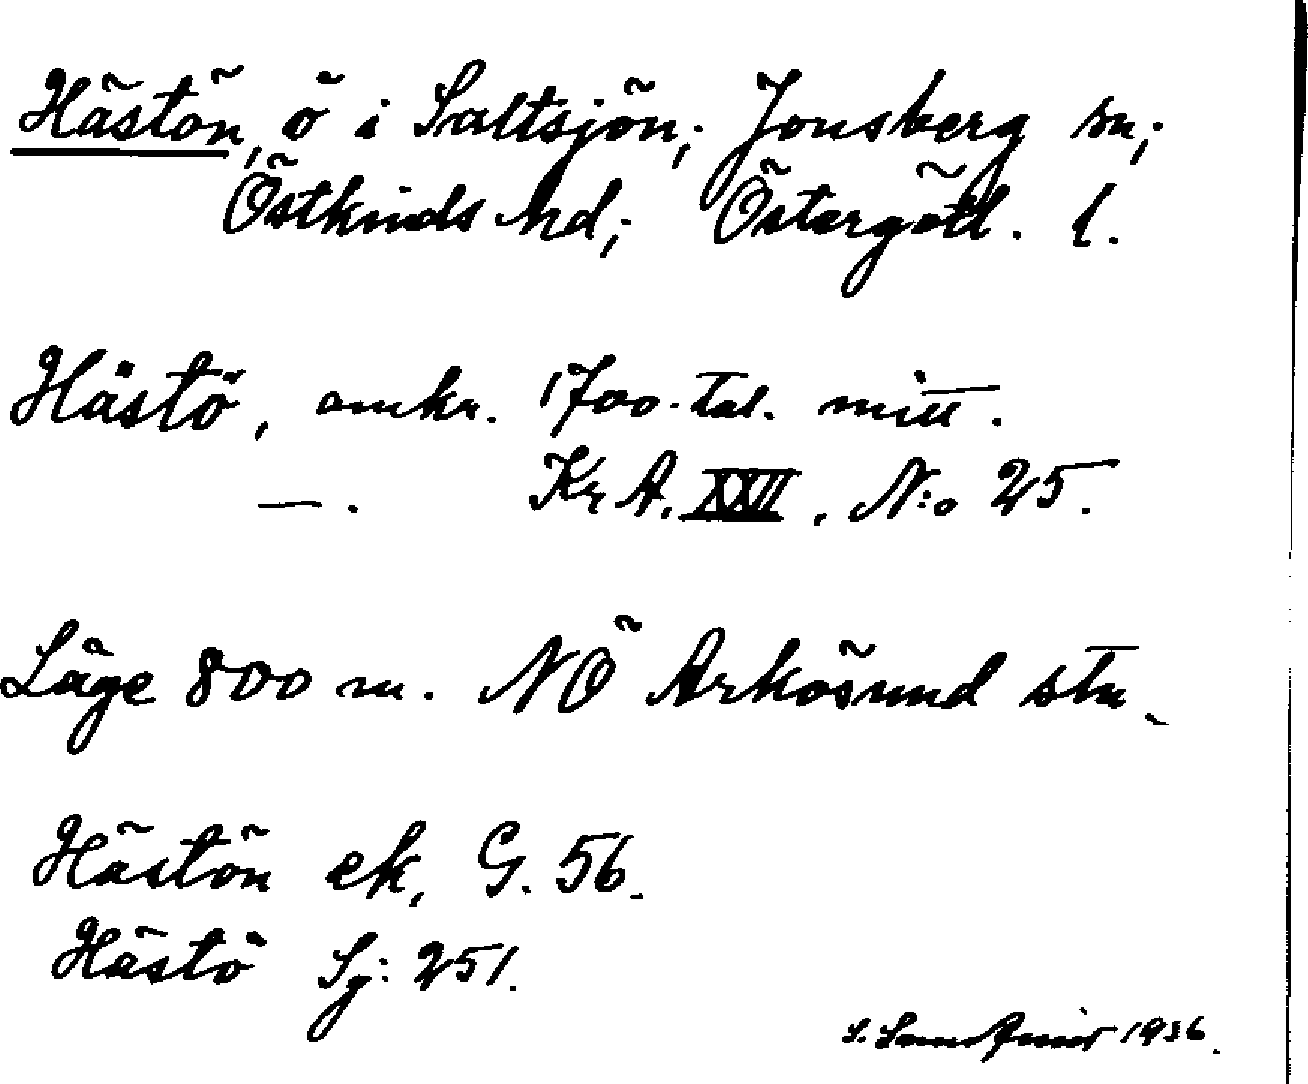 Hästön, ö i Saltsjön; Jonsberg sn;
Östkinds hd; Östergötl. l.
Hästö, omkr. 1700-tal. mitt.
—. Kr A. XXVI, N:o 25.
Läge 800 m. NÖ Arkösund stn.
Hästön ek, G. 56.
Hästö Sj: 251.
S. 1936.